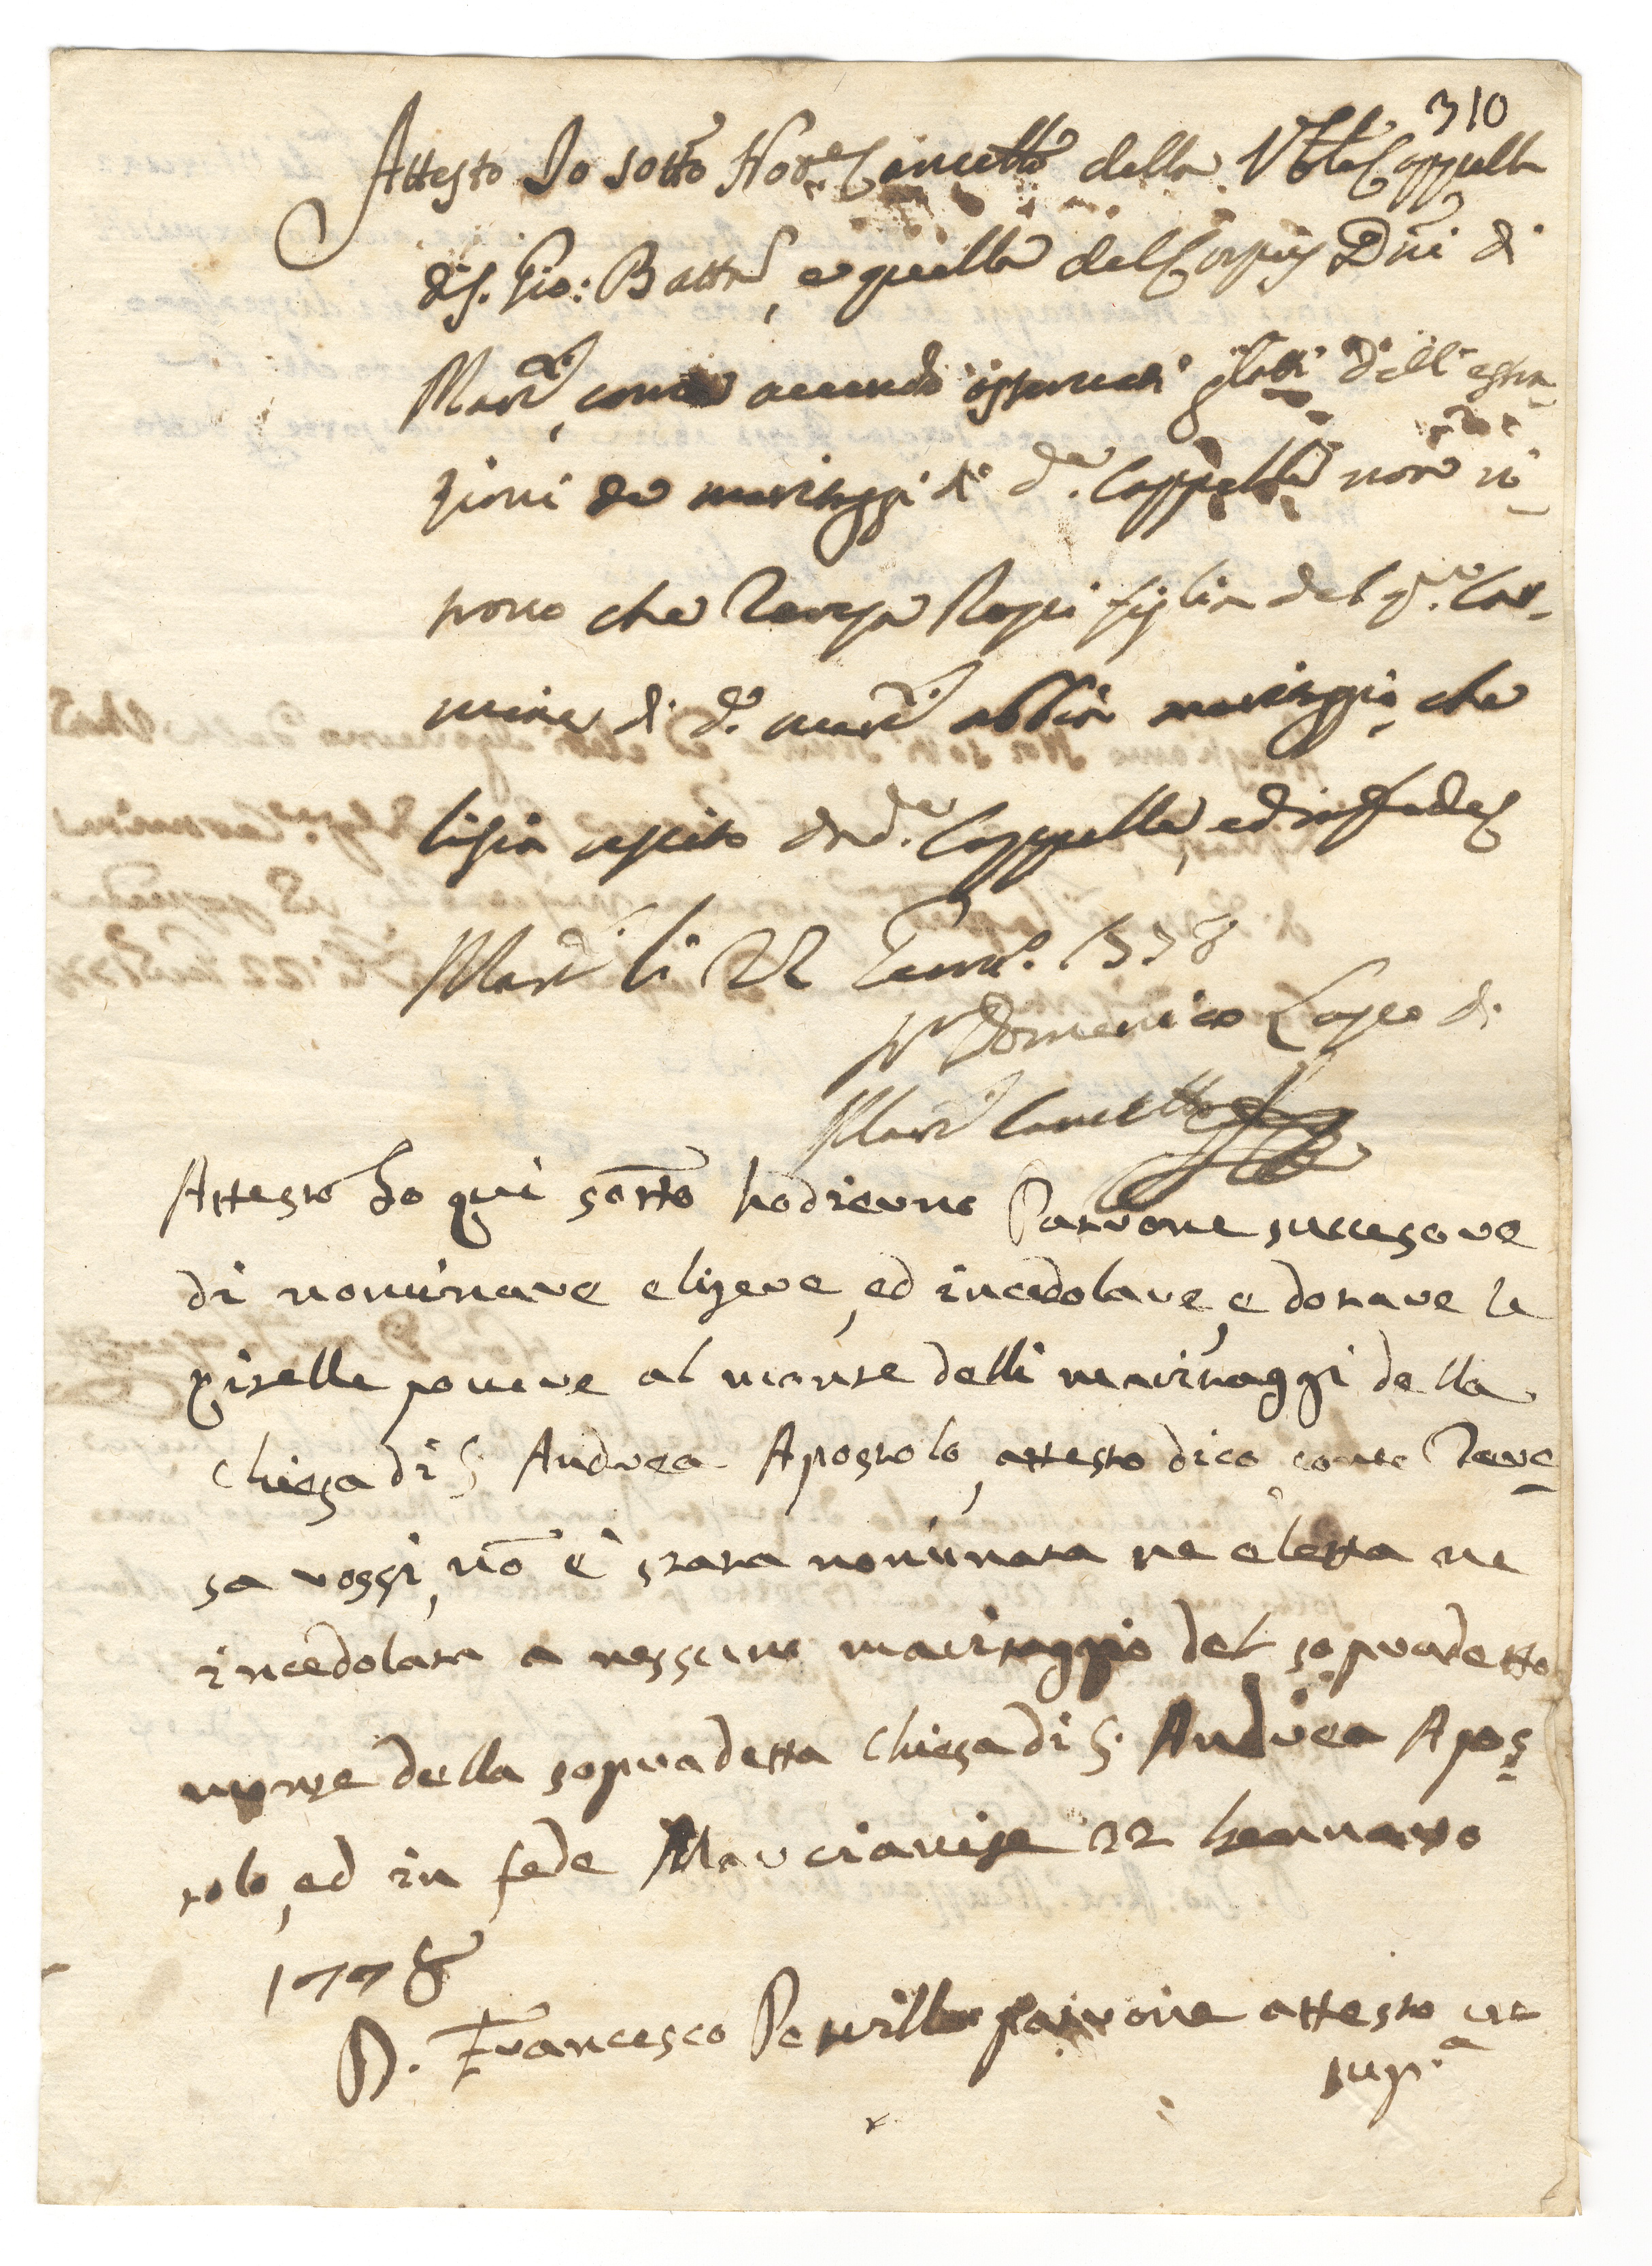 310
Attesto Io sotto Not.r Cancell.e della V.ble Cappella
di S. Gio: Batta, e quella del Corpus Dni di
Marc.e, come avendo osservati gl'atti dell'estra-
zioni de maritaggi di d.a Cappella non ri-
trovo che Teresa Rossi figlia del q.m Car-
mine di d.o Marc.e abbia maritaggio, che
li sia uscito da d.a Cappella, ed in fede
Marc.e li 22 Genn.o 1778
N.r Domenico di
Marc.e Cancell.e
Attesto Io qui sotto hodierno Patrone successore
di nominare eligere, ed incedolare, e dotare le
zitelle povere al monte delli maritaggi della
Chiesa di S Andrea Apostolo, attesto dico come Tere
sa rossi, nō è stata nominata ne eletta ne
incedolata a nessuno maritaggio del sopradetto
monte della sopradetta Chiesa di S. Andrea Apos
tolo, ed in fede Marcianise 22 Gennaro
1778
D. Francesco Patrone attesto ut
sup.a